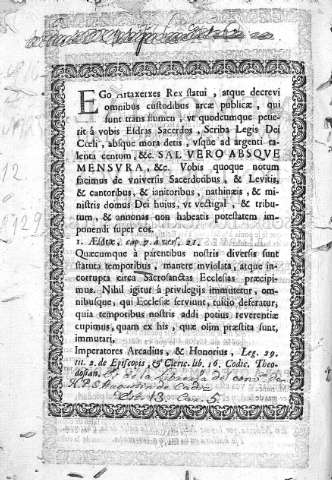 EGo Artaxerxes Rex statui, atque decrevi
omnibus custodibus arcæ publicæ, qui
sunt trans flumen, ut quodcumque petie-
rit à vobis Esdras Sacerdos, Scriba Legis Dei
Cœli, absque mora detis, usque ad argenti ta-
lenta centum, &c. SAL VERO ABSQVE
MENSVRA, &c. Vobis quoque notum
facimus de vniversis Sacerdotibus, & Levitis,
& cantoribus, & ianitoribus, nathinæis, & mi-
nistris domus Dei huius, ut vectigal, & tribu-
tum, & annonas non habeatis potestatem im-
ponendi super eos.
1. Esdræ, cap. 7. à vers. 21.
Quæcumque à parentibus nostris diversis sunt
statuta temporibus, manere inviolata, atque in-
corrupta circa Sacrosanctas Ecclesias præcipi-
mus. Nihil igitur à privilegijs immutetur, om-
nibusque, qui Ecclesiæ serviunt, tuitio deferatur,
quia temporibus nostris addi potius reverentiæ
cupimus, quam ex his, quæ olim præstita sunt,
immutari.
Imperatores Arcadius, & Honorius, Leg. 29.
tit. 2. de Episcopis, & Cleric. lib. 16. Codic. Theo-
dosian.